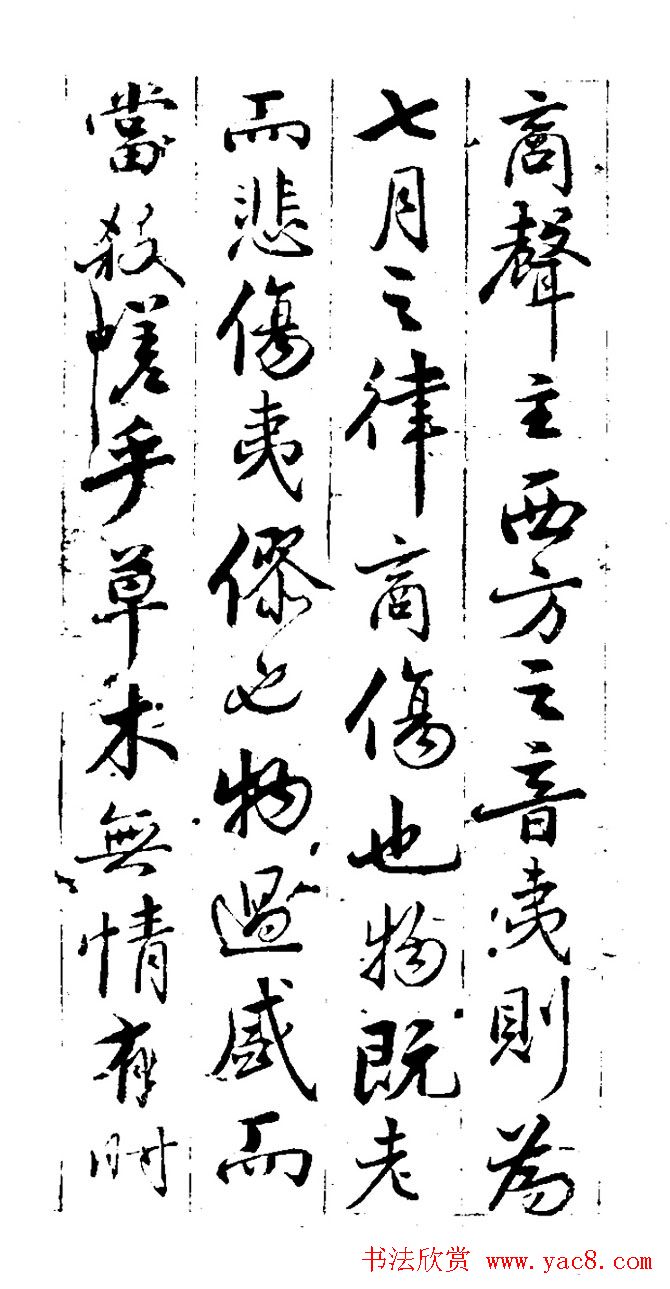 商聲主西方之音夷則為
七月之律商傷也物既老
而悲傷夷僇也物過盛而
當殺嗟乎草木無情有時
书法欣赏 www.yac8.com